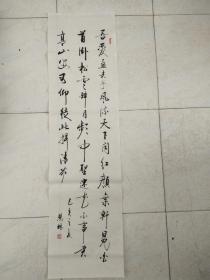 吾爱孟夫子风流天下闻红颜弃轩冕白
首卧松云醉月频中圣迷花不事君
高山安可仰徒此揖清芬